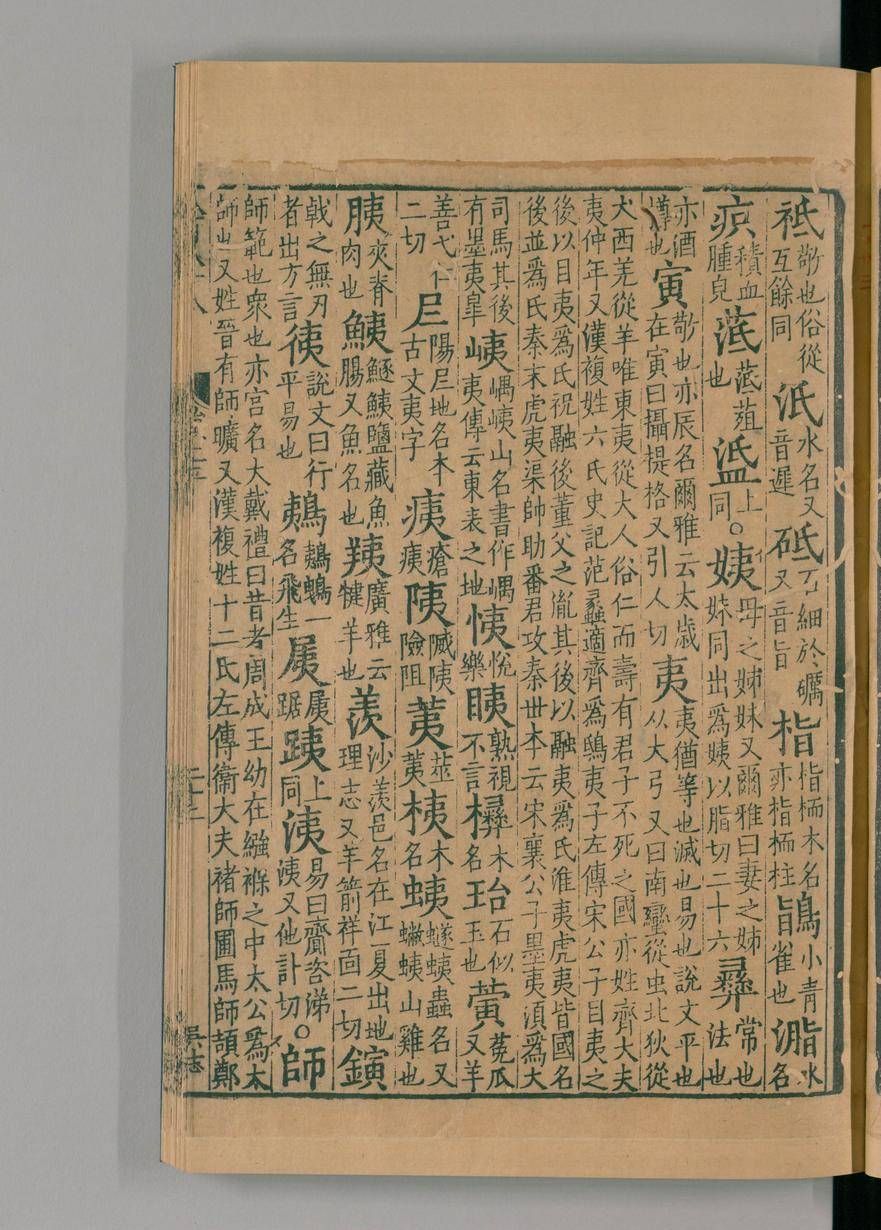 祗敬也俗從互餘同泜水名又音遲砥石細於礪又音旨栺栺栭木名亦栺栭柱鴲小青雀也漡水名
疻積血腫皃蚳蚳蒩也𥂖上同。姨母之姊妹又爾雅曰妻之姊妹同出爲姨以脂切二十六彛常也法也
亦酒罇也寅敬也亦辰名爾雅云太歲在寅曰攝提格又引人切夷夷猶等也滅也易也說文平也从大弓又曰南蠻從虫北狄從
犬西羌從羊唯東夷從大人俗仁而壽有君子不死之國亦姓齊大夫夷仲年又漢複姓六氏史記范蠡適齊爲鴟夷子左傳宋公子目夷之
後以目夷爲氏祝融後董父之胤其後以融夷爲氏淮夷虎夷皆國名後並爲氏秦末虎夷渠帥助番君攻秦世本云宋襄公子墨夷湏爲大
司馬其後有墨夷皐峓嵎峓山名書作嵎夷傳云東表之地恞悅樂眱熟視不言㰘木名珆石似玉也𦿂菟瓜又羊
善弋仁二切𡰥陽𡰥地名本古文夷字痍瘡痍陦㓕陦險阻荑莁荑桋木名蛦螔蛦蟲名又蟙蛦山雞也
胰夾脊肉也鮧鱁鮧鹽藏魚腸又魚名也羠廣雅云犍羊也羨沙羨邑名在江夏出地理志又羊箭祥面二切鏔
戟之無刃者出方言徥說文曰行平易也鴺鴺鵂一名飛生屖屖踞跠上同洟易曰齎咨涕洟又他計切。師
師範也衆也亦官名大戴禮曰昔者周成王幼在繈褓之中太公爲太師也又姓晉有師曠又漢複姓十二氏左傳衞大夫褚師圃馬師頡鄭
二十二
吳志